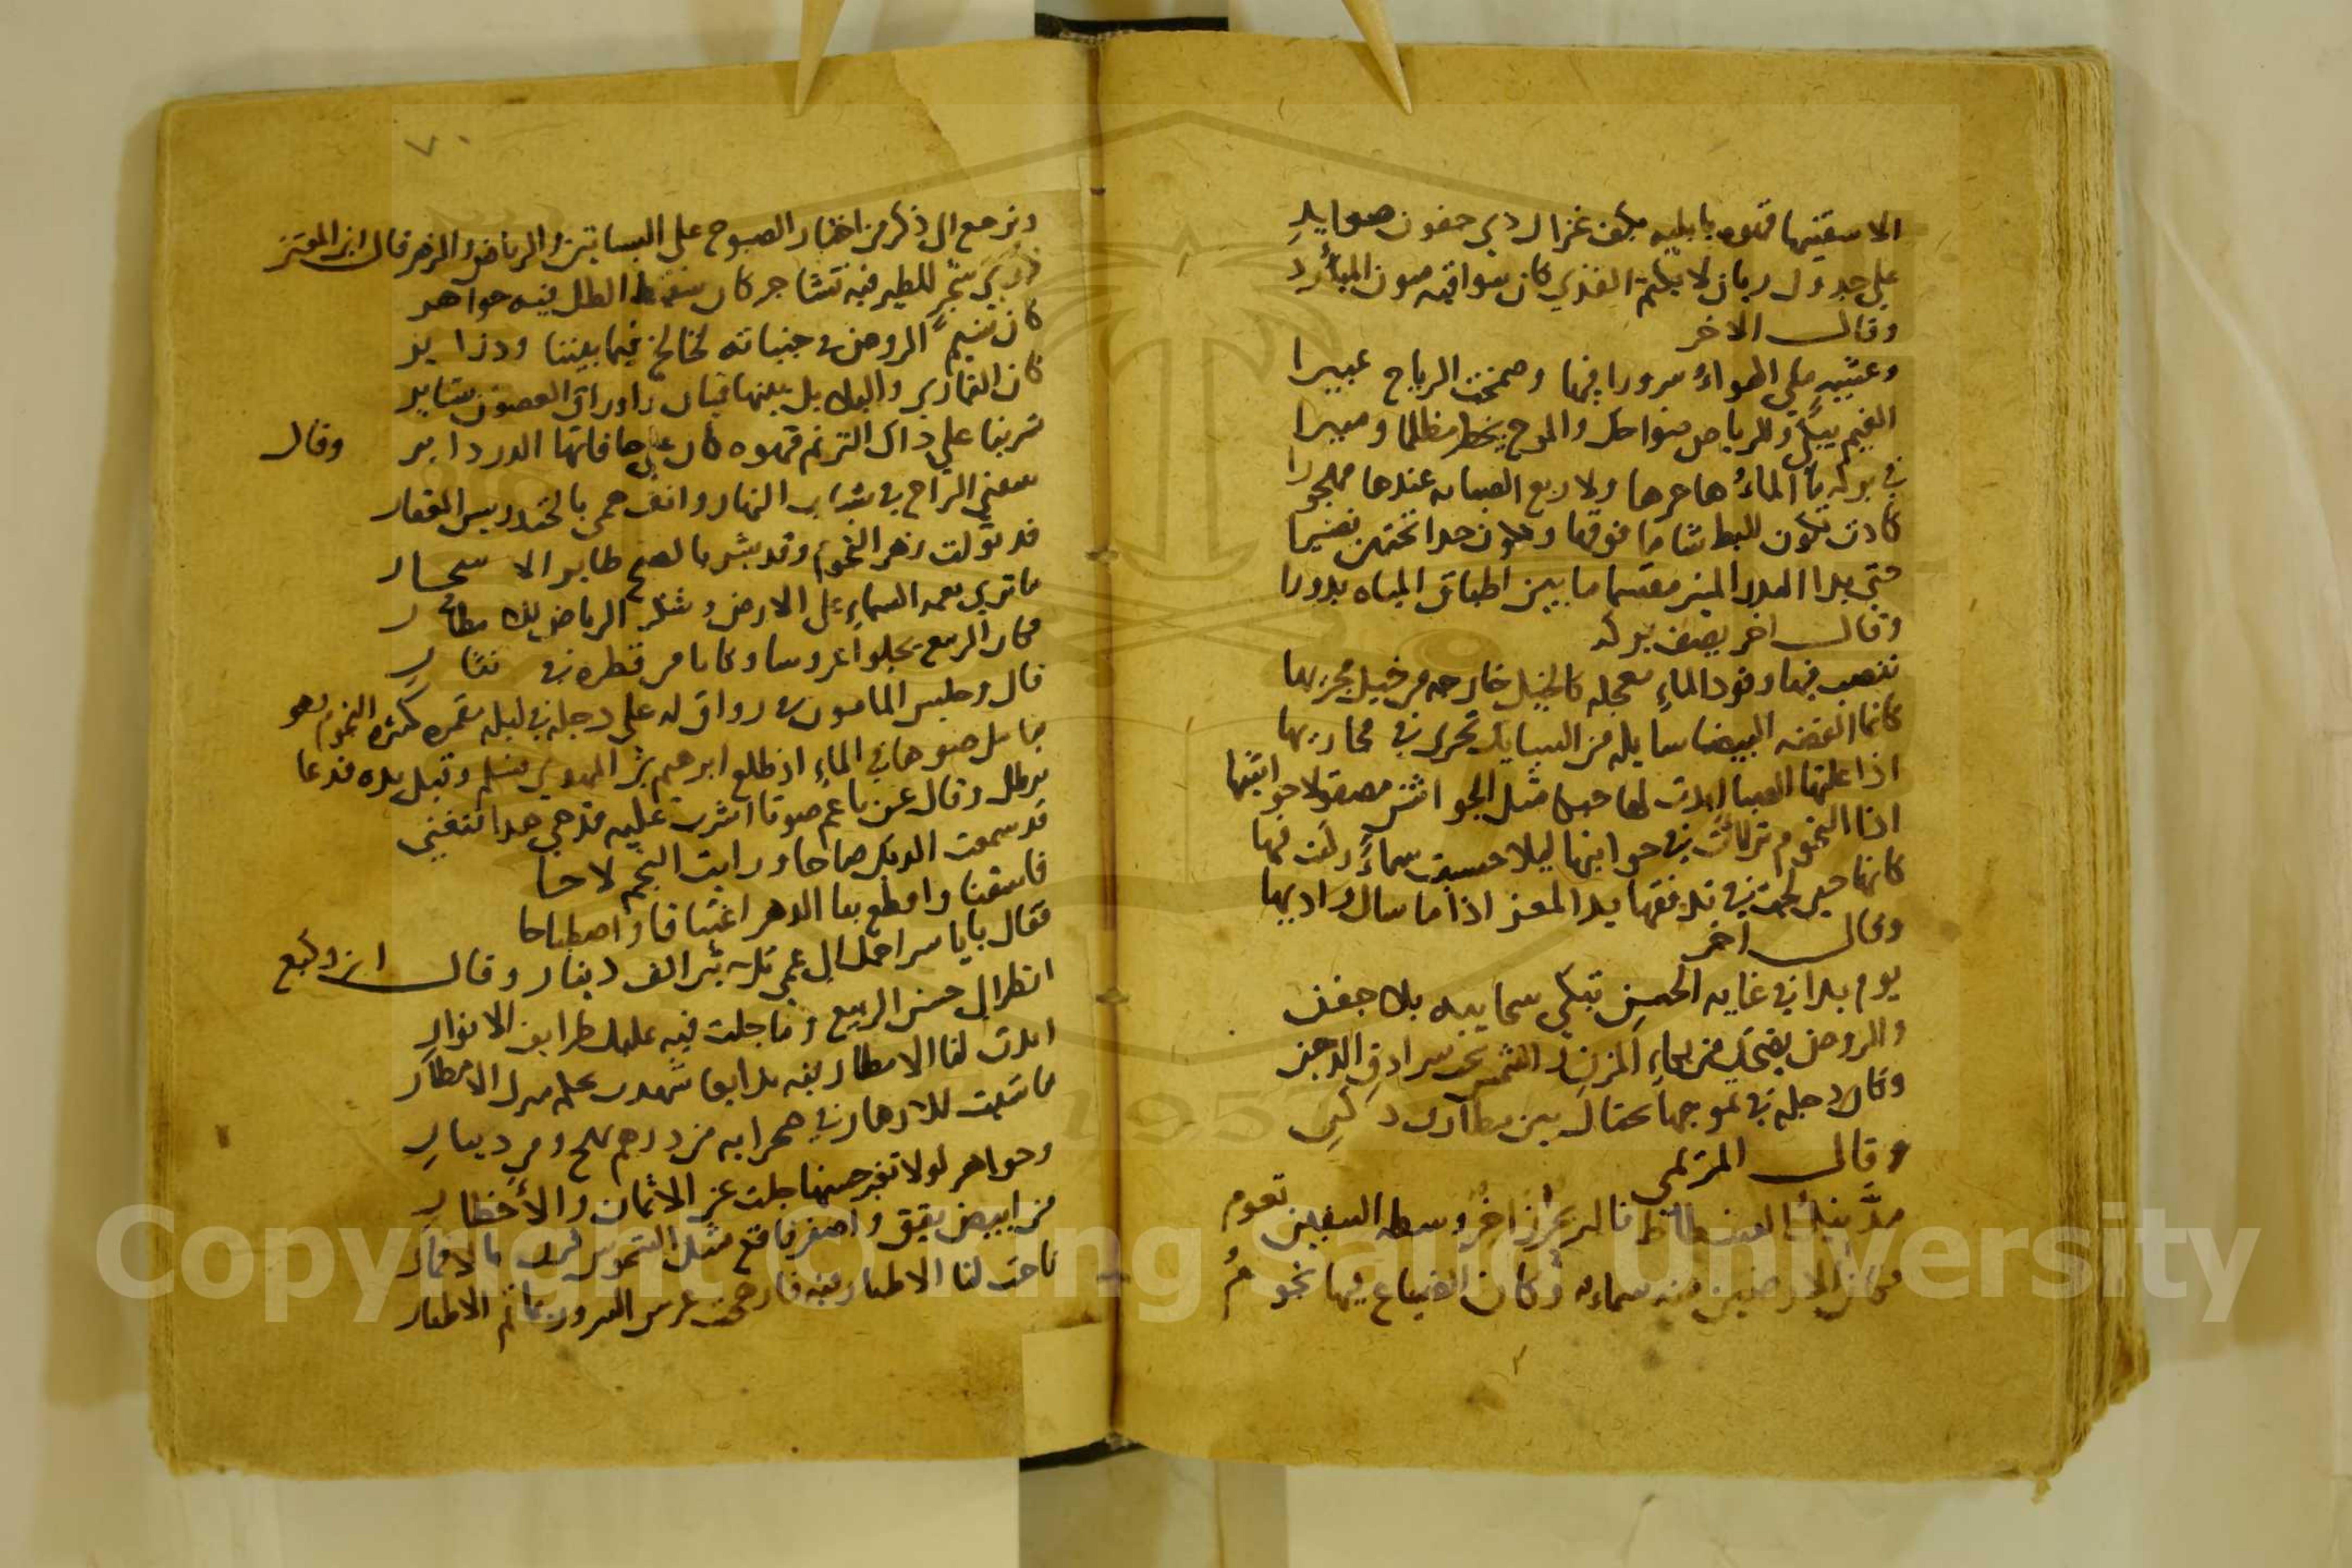 الا سقنيها قهوه بابليه بكف غزال ذي جفون صوايد
على جدول ريان لا يكتم القذي كان سواقيه متون المبارد
وقال الاخر
وعشيه ملي الهواء سرورا فيها وضمخت الرياح عبيرا
الغيم يبكي والرياض ضواحك والموج يخطر مظلما ومنيرا
في بركه ما الماء هاجرها ولا ربع الصبابه عندها مهجورا
كادت تكون للبط شاطا فوقها وتكون جدا تحتهن نضيرا
حتي بدا البدر المنير مقسما ما بين اطباق المياه بدورا
وقال اخر يصف بركه
تنصب فيها وفود الماء معجله كالخيل خارجه من حبل مجريها
كانما الفضه البيضا سايله من السبايك تجري في مجاريها
اذا علتها الصبا ابدت لها حبكا مثل الجواشن مصقولا حواشيها
اذا النجوم تراات في جوانبها ليلا حسبت سماء ركبت فيها
كانها حين لجت في تدفقها يد المعز اذا ما سال واديها
وقال اخر
يوم بدا في غايه الحسن تبكي سحايبه بلا جفن
والروض يضحك من بكاء المزن والشمس تحت سرادق الدجن
وكان دجله في تموجها تختال بين مطارف دكن
وقال المزيمي
مد نيل الفسطاط فالبر بحر زاخر وسطه السفين تعوم
فكان الارضين منه سماء وكان الضياع فيها نجوم
ونرجع الي ذكر من اختار الصبوح على البساتين والرياض والزهر قال ابن المعتز
شجر للطير فيه تشاجر كان سقيط الطل فيه جواهر
كان نسيم الروض في جنباته لخالخ فيما بيننا وذراير
كان القماري والبلابل بينها قيان واوراق الغصون ستاير
شربنا علي ذاك الترنم قهوه كان على حافاتها الدر داير وقال
سقني الراح في شباب النهار وانف همي بالخندريس العقار
قد تولت زهر النجوم وقد بشر بالصبح طاير الاسحار
ما تري نعمه السماء على الارض وشكر الرياض للامطار
فكان الربيع يجلوا عروسا وكانا من قطره في نثار
قال وجلس المامون في رواق له على دجله في ليله مقمره كثيره النجوم وهو
يتامل ضوها في الماء اذ طلع ابرهيم بن المهدي فسلم وقبل يده فدعا
برطل وقال غن يا عم صوتا اشرب عليه قدحي هذا فتغني
قد سمعت الديك صاحا ورايت النجم لاحا
فاسقنا واقطع بنا الدهر اغتباقا واصطباحا
فقال يا ياسر احمل الي عمي ثلاثين الف دينار وقال ابن وكيع
انظر الي حسن الربيع وما جلت فيه عليك طرايف الانوار
ابدت لنا الامطار فيه بدايعا شهدت بحكمه منزل الامطار
ما شيت للازهار في صحرايه من درهم بهج ومن دينار
وجواهر لولا تغير حسنها جلت عن الاثمان والاخطار
من ابيض يقق واصفر فاقع مثل الشموس قرن بالاقمار
ناحت لنا الاطيار فيه فارهجت عرس السرور ومأتم الاطيار
٧٠
Copyright © King Saud University
1957